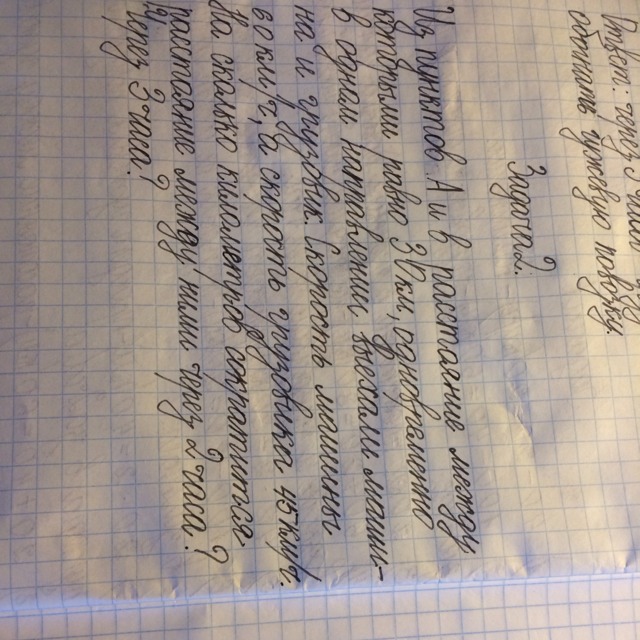 Ответ: через 3 часа
обогнать чужевую повозку.
Задача 2.
Из пунктов А и В расстояние между
которыми равно 30 км, одновременно
в одном направлении выехали маши-
на и грузовик. Скорость машины
60 км/ч, а скорость грузовика 45 км/ч.
На сколько километров сократится
расстояние между ними через 2 часа?
Через 3 часа?